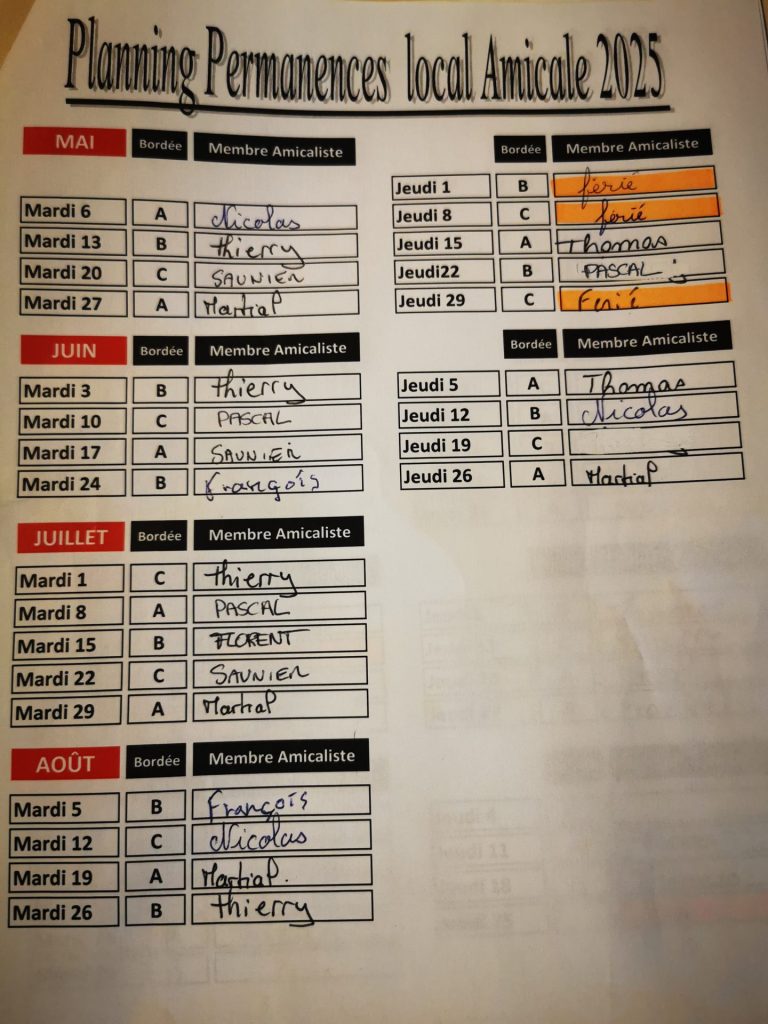 Planning Permanences local Amicale 2025
MAI Bordée Membre Amicaliste
Mardi 6 A Nicolas
Mardi 13 B thierry
Mardi 20 C SAUNIER
Mardi 27 A Martial
Bordée Membre Amicaliste
Jeudi 1 B férié
Jeudi 8 C férié
Jeudi 15 A Thomas
Jeudi22 B PASCAL
Jeudi 29 C Ferié
JUIN Bordée Membre Amicaliste
Mardi 3 B thierry
Mardi 10 C PASCAL
Mardi 17 A SAUNIER
Mardi 24 B François
Bordée Membre Amicaliste
Jeudi 5 A Thomas
Jeudi 12 B Nicolas
Jeudi 19 C
Jeudi 26 A Martial
JUILLET Bordée Membre Amicaliste
Mardi 1 C thierry
Mardi 8 A PASCAL
Mardi 15 B FLORENT
Mardi 22 C SAUNIER
Mardi 29 A Martial
AOÛT Bordée Membre Amicaliste
Mardi 5 B François
Mardi 12 C Nicolas
Mardi 19 A Martial.
Mardi 26 B thierry
Jeudi 4
Jeudi 11
Jeudi 18